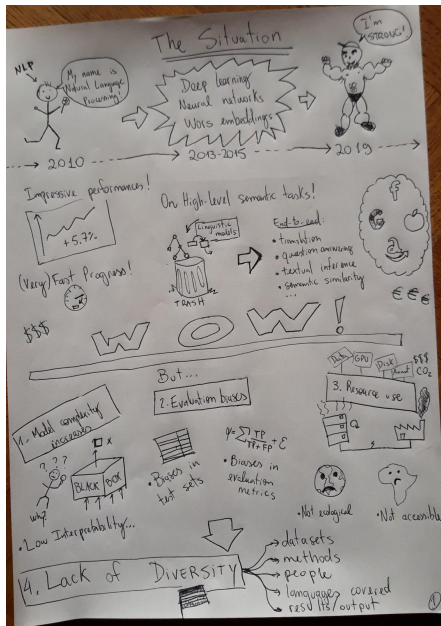 The Situation
NLP
My name is
Natural Language
Processing!
Deep learning
Neural networks
Wors embeddings
I'm
STRONG!
2010
2013-2015
2019
Impressive performances!
+5.7%
(Very) Fast Progress!
On High-level semantic tasks!
Linguistic
models
TRASH
End-to-end:
• translation
• question answering
• textual inference
• semantic similarity
...
f
G
a
$$$
€€€
WOW!
But...
1. Model complexity
increased
???
why?
BLACK BOX
x
• Low Interpretability...
2. Evaluation biases
• Biases in
test sets
TP
TP+FP
+ ε
• Biases in
evaluation
metrics
Data
GPU
Disk
$$$
CO2
3. Resource use
• Not ecological
• Not accessible
4. Lack of DIVERSITY
datasets
methods
people
languages covered
results/output
1